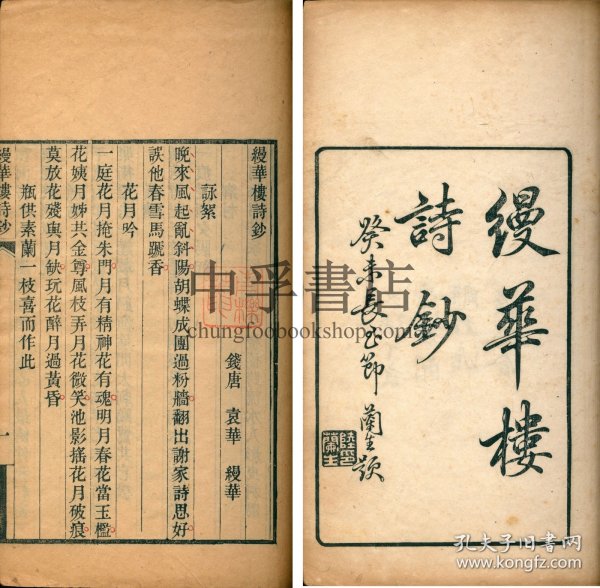 縵華樓
詩鈔
癸未長至節 蘭生題
縵華樓詩鈔
錢唐 袁華 縵華
詠絮
晚來風起亂斜陽胡蝶成團過粉牆翻出謝家詩思好
誤他春雪馬蹏香
花月吟
一庭花月掩朱門月有精神花有魂明月春花當玉檻
花姨月姊共金尊風枝弄月花微笑池影搖花月破痕
莫放花殘與月缺玩花醉月過黃昏
瓶供素蘭一枝喜而作此
縵華樓詩鈔
一
中孚書店
chungfoobookshop.com
孔夫子旧书网
www.kongfz.com